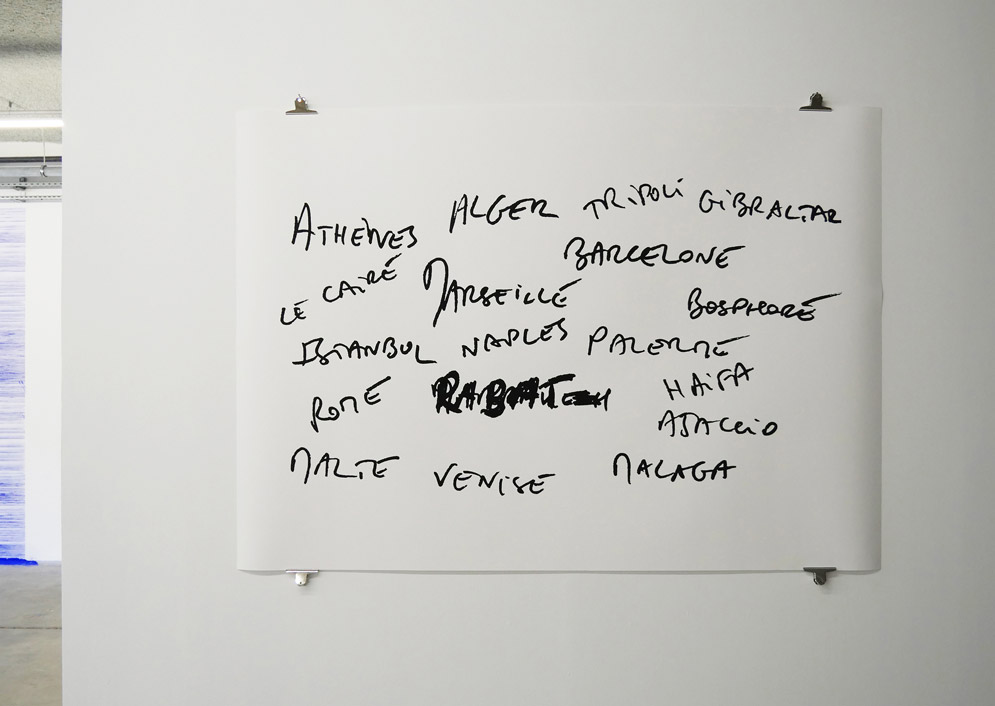 ATHÈNES ALGER TRIPOLI GIBRALTAR
BARCELONE
LE CAIRE MARSEILLE BOSPHORE
ISTANBUL NAPLES PALERME
ROME HAIFA
AJACCIO
MALTE VENISE MALAGA